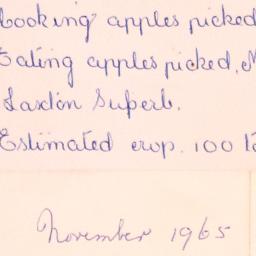 Cooking apples picked
Eating apples picked, M
Laxton Superb.
Estimated crop. 100 lb
November 1965